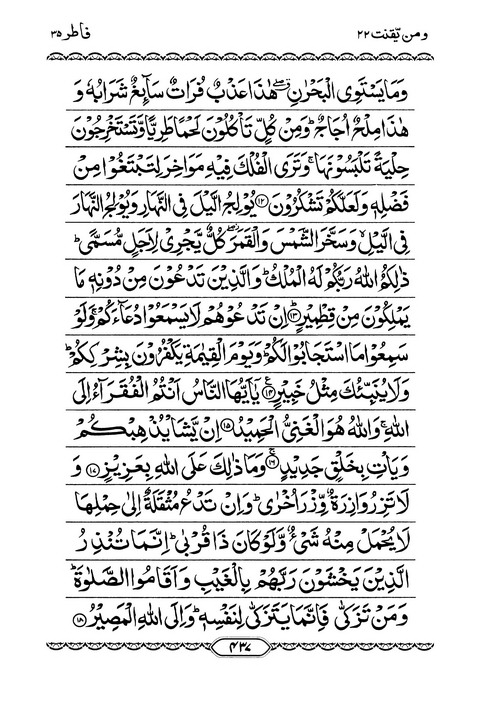 ومن يقنت ٢٢ فاطر ٣٥
وَمَا يَسْتَوِى الْبَحْرٰنِ ۖ هٰذَا عَذْبٌ فُرَاتٌ سَآئِغٌ شَرَابُهٗ وَ
هٰذَا مِلْحٌ اُجَاجٌ ؕ وَمِنْ كُلٍّ تَاْكُلُوْنَ لَحْمًا طَرِيًّا وَّتَسْتَخْرِجُوْنَ
حِلْيَةً تَلْبَسُوْنَهَا ۚ وَتَرَى الْفُلْكَ فِيْهِ مَوَاخِرَ لِتَبْتَغُوْا مِنْ
فَضْلِهٖ وَلَعَلَّكُمْ تَشْكُرُوْنَ ﴿١٢﴾ يُوْلِجُ الَّيْلَ فِى النَّهَارِ وَيُوْلِجُ النَّهَارَ
فِى الَّيْلِ ۙ وَسَخَّرَ الشَّمْسَ وَالْقَمَرَ ۖ كُلٌّ يَّجْرِىْ لِاَجَلٍ مُّسَمًّى ؕ
ذٰلِكُمُ اللّٰهُ رَبُّكُمْ لَهُ الْمُلْكُ ؕ وَالَّذِيْنَ تَدْعُوْنَ مِنْ دُوْنِهٖ مَا
يَمْلِكُوْنَ مِنْ قِطْمِيْرٍ ﴿١٣﴾ اِنْ تَدْعُوْهُمْ لَا يَسْمَعُوْا دُعَآءَكُمْ ۚ وَلَوْ
سَمِعُوْا مَا اسْتَجَابُوْا لَكُمْ ؕ وَيَوْمَ الْقِيٰمَةِ يَكْفُرُوْنَ بِشِرْكِكُمْ ؕ
وَلَا يُنَبِّئُكَ مِثْلُ خَبِيْرٍ ﴿١٤﴾ يٰۤاَيُّهَا النَّاسُ اَنْتُمُ الْفُقَرَآءُ اِلَى
اللّٰهِ ۚ وَاللّٰهُ هُوَ الْغَنِىُّ الْحَمِيْدُ ﴿١٥﴾ اِنْ يَّشَاْ يُذْهِبْكُمْ
وَيَاْتِ بِخَلْقٍ جَدِيْدٍ ﴿١٦﴾ وَمَا ذٰلِكَ عَلَى اللّٰهِ بِعَزِيْزٍ ﴿١٧﴾ وَ
لَا تَزِرُ وَازِرَةٌ وِّزْرَ اُخْرٰى ؕ وَاِنْ تَدْعُ مُثْقَلَةٌ اِلٰى حِمْلِهَا
لَا يُحْمَلْ مِنْهُ شَىْءٌ وَّلَوْ كَانَ ذَا قُرْبٰى ؕ اِنَّمَا تُنْذِرُ
الَّذِيْنَ يَخْشَوْنَ رَبَّهُمْ بِالْغَيْبِ وَاَقَامُوا الصَّلٰوةَ ؕ
وَمَنْ تَزَكّٰى فَاِنَّمَا يَتَزَكّٰى لِنَفْسِهٖ ؕ وَاِلَى اللّٰهِ الْمَصِيْرُ ﴿١٨﴾
٤٣٧